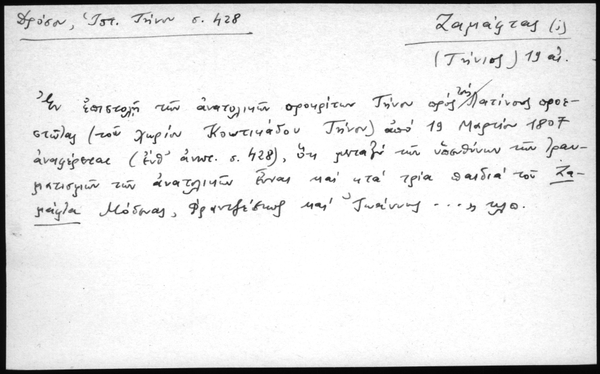 Δρόσου, Ἱστ. Τήνου σ. 428
Ζαμάρτας (ὁ)
(Τήνιος) 19 αἰ.
Ἐν ἐπιστολῇ τῶν ἀνατολικῶν προκρίτων Τήνου πρὸς τοὺς Λατίνους προε-
στῶτας (τοῦ χωρίου Κωστιμάδου Τήνου) ἀπὸ 19 Μαρτίου 1807
ἀναφέρεται (ἔνθ' ἀνωτ. σ. 428), ὅτι μεταξὺ τῶν ὑπευθύνων τῶν τραυ-
ματισμῶν τῶν ἀνατολικῶν εἶναι καὶ τὰ τρία παιδιὰ τοῦ Ζα-
μάρτα Μάρκος, Φραντζέσκος καὶ Ἰωάννης ... κτλ.